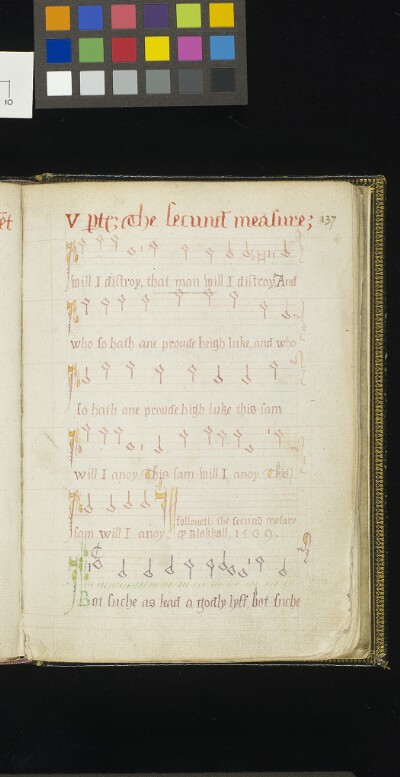 et
V pte; The secund measure; 337
will I distroy, that man will I distroy. And
who so hath ane proude heigh luke, and who
so hath ane proude high luke this sam
will I anoy. This sam will I anoy. This
followeth the secund mesure
sam will I anoy. Blakhall. 1569.
Bot suche as lead a godly lyff, bot suche
10